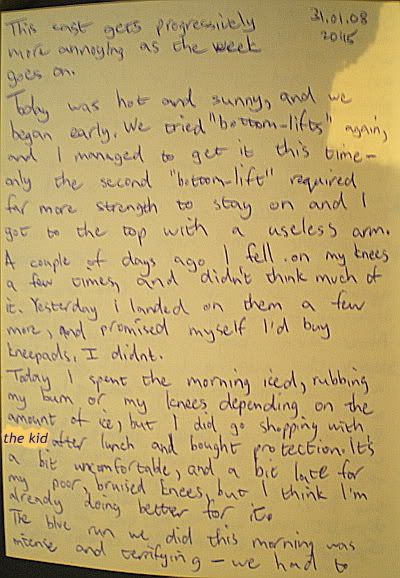 This cast gets progressively
31.01.08
more annoying as the week
20:15
goes on.
Today was hot and sunny, and we
began early. We tried "bottom-lifts" again,
and I managed to get it this time -
only the second "bottom-lift" required
far more strength to stay on and I
got to the top with a useless arm.
A couple of days ago I fell on my knees
a few times, and didn't think much of
it. Yesterday i landed on them a few
more, and promised myself I'd buy
kneepads. I didnt.
Today I spent the morning iced, rubbing
my bum or my knees depending on the
amount of ice, but I did go shopping with
the kid after lunch and bought protection. It's
a bit uncomfortable, and a bit late for
my poor, bruised knees, but I think I'm
already doing better for it.
The blue run we did this morning was
intense and terrifying - we had to